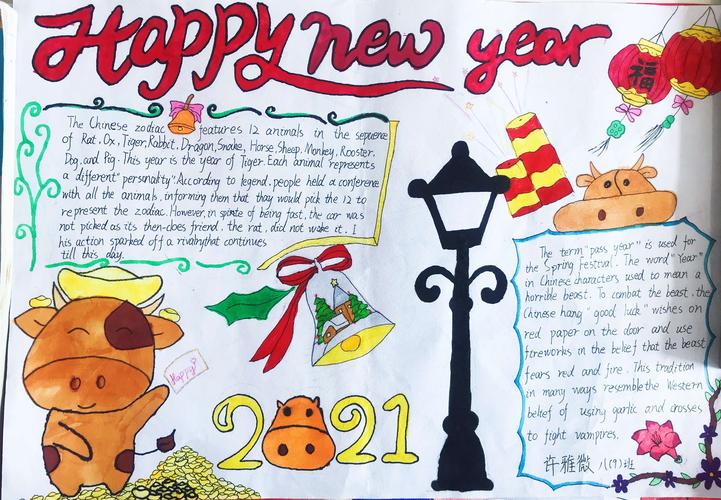 Happy new year
福
The Chinese zodiac features 12 animals in the sequence
of Rat, Ox, Tiger, Rabbit, Dragon, Snake, Horse, Sheep, Monkey, Rooster,
Dog, and Pig. This year is the year of Tiger. Each animal represents
a different "personality". According to legend, people held a conference
with all the animals, informing them that they would pick the 12 to
represent the zodiac. However, in spiste of being fast, the car was
not picked as its then-does friend, the rat, did not wake it. I
his action sparked off a rivalrythat continues
till this day.
The term "pass year" is used for
the Spring Festival. The word "Year"
in Chinese characters used to mean a
horrible beast. To combat the beast, the
Chinese hang "good luck" wishes on
red paper on the door and use
fireworks in the belief that the beast
fears red and fire. This tradition
in many ways resemblethe Western
belief of using garlic and crosses
to fight vampires.
许雅微 八(9)班
Happy
2021